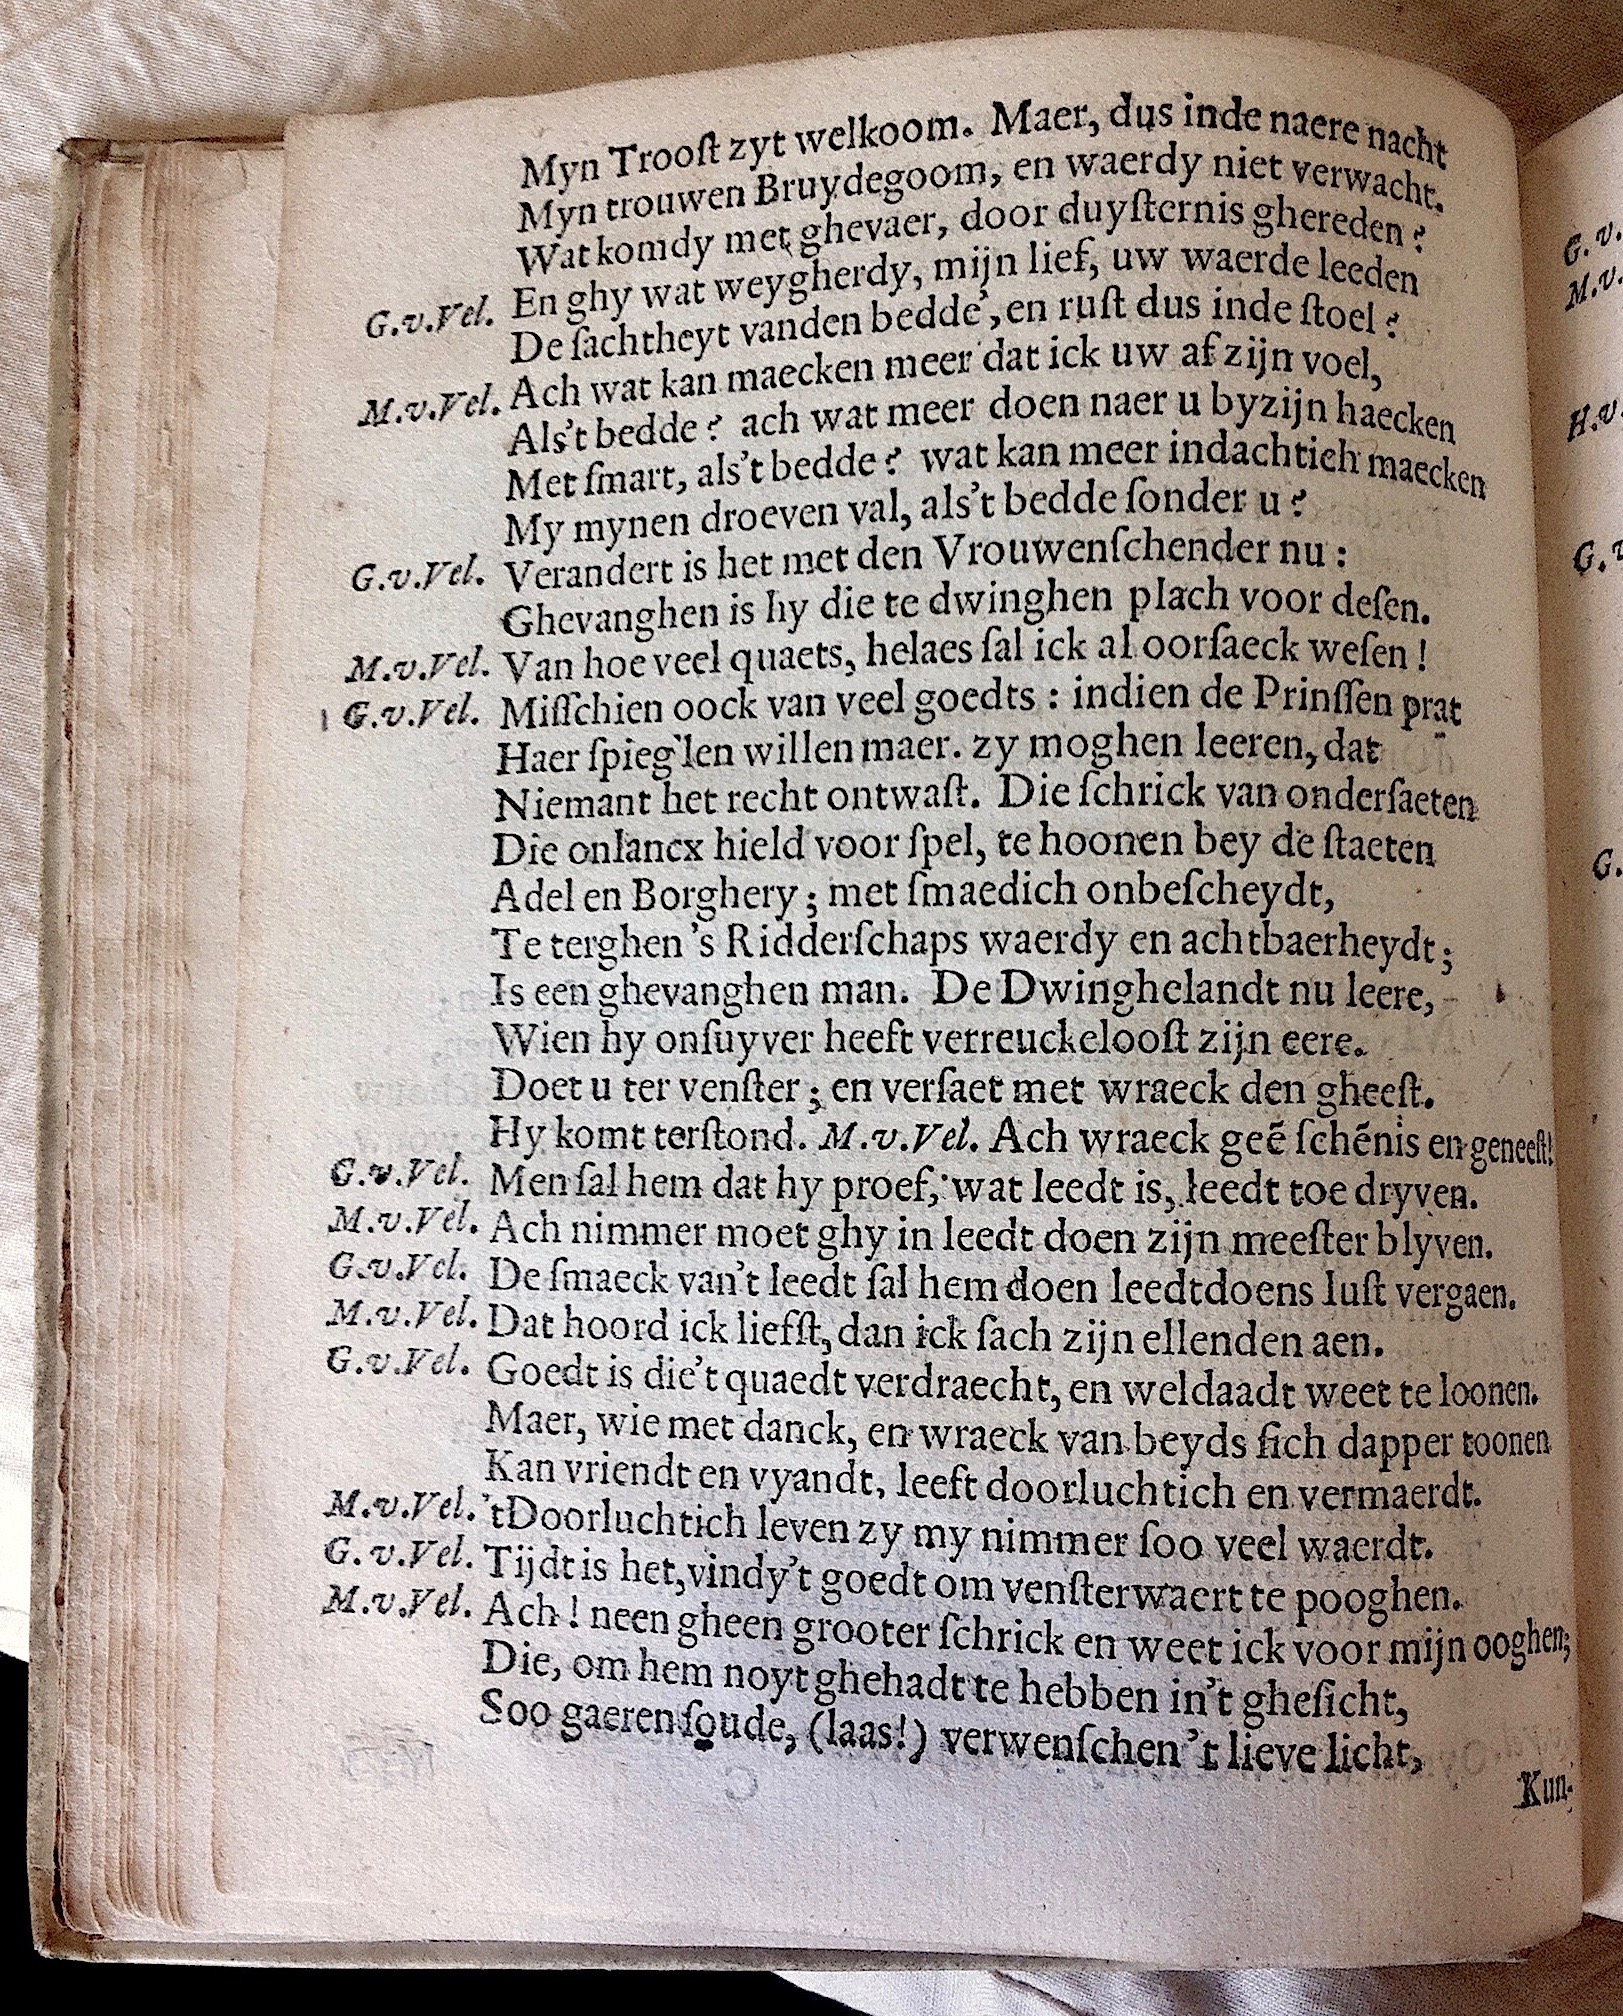 Myn Trooſt zyt welkoom. Maer, dus inde naere nacht
Myn trouwen Bruydegoom, en waerdy niet verwacht.
Wat komdy met ghevaer, door duyſternis ghereden?
G.v.Vel. En ghy wat weygherdy, mijn lief, uw waerde leeden
De ſachtheyt vanden bedde, en ruſt dus inde ſtoel?
M.v.Vel. Ach wat kan maecken meer dat ick uw af zijn voel,
Als't bedde? ach wat meer doen naer u byzijn haecken
Met ſmart, als't bedde? wat kan meer indachtich maecken
My mynen droeven val, als't bedde ſonder u?
G.v.Vel. Verandert is het met den Vrouwenſchender nu:
Ghevanghen is hy die te dwinghen plach voor deſen.
M.v.Vel. Van hoe veel quaets, helaes ſal ick al oorſaeck weſen!
G.v.Vel. Miſſchien oock van veel goedts: indien de Prinſſen prat
Haer ſpieg'len willen maer. zy moghen leeren, dat
Niemant het recht ontwaſt. Die ſchrick van onderſaeten
Die onlancx hield voor ſpel, te hoonen bey de ſtaeten
Adel en Borghery; met ſmaedich onbeſcheydt,
Te terghen 's Ridderſchaps waerdy en achtbaerheydt;
Is een ghevanghen man. De Dwinghelandt nu leere,
Wien hy onſuyver heeft verreuckelooſt zijn eere.
Doet u ter venſter; en verſaet met wraeck den gheeſt.
Hy komt terſtond. M.v.Vel. Ach wraeck geē ſchēnis en geneeſt!
G.v.Vel. Men ſal hem dat hy proef, wat leedt is, leedt toe dryven.
M.v.Vel. Ach nimmer moet ghy in leedt doen zijn meeſter blyven.
G.v.Vel. De ſmaeck van't leedt ſal hem doen leedtdoens luſt vergaen.
M.v.Vel. Dat hoord ick liefſt, dan ick ſach zijn ellenden aen.
G.v.Vel. Goedt is die't quaedt verdraecht, en weldaadt weet te loonen.
Maer, wie met danck, en wraeck van beyds ſich dapper toonen
Kan vriendt en vyandt, leeft doorluchtich en vermaerdt.
M.v.Vel. 'tDoorluchtich leven zy my nimmer ſoo veel waerdt.
G.v.Vel. Tijdt is het, vindy't goedt om venſterwaert te pooghen.
M.v.Vel. Ach! neen gheen grooter ſchrick en weet ick voor mijn ooghen;
Die, om hem noyt ghehadt te hebben in't gheſicht,
Soo gaeren ſoude, (laas!) verwenſchen 't lieve licht,
Kun-
G.v.
M.v.
H.v.
G.v
G.